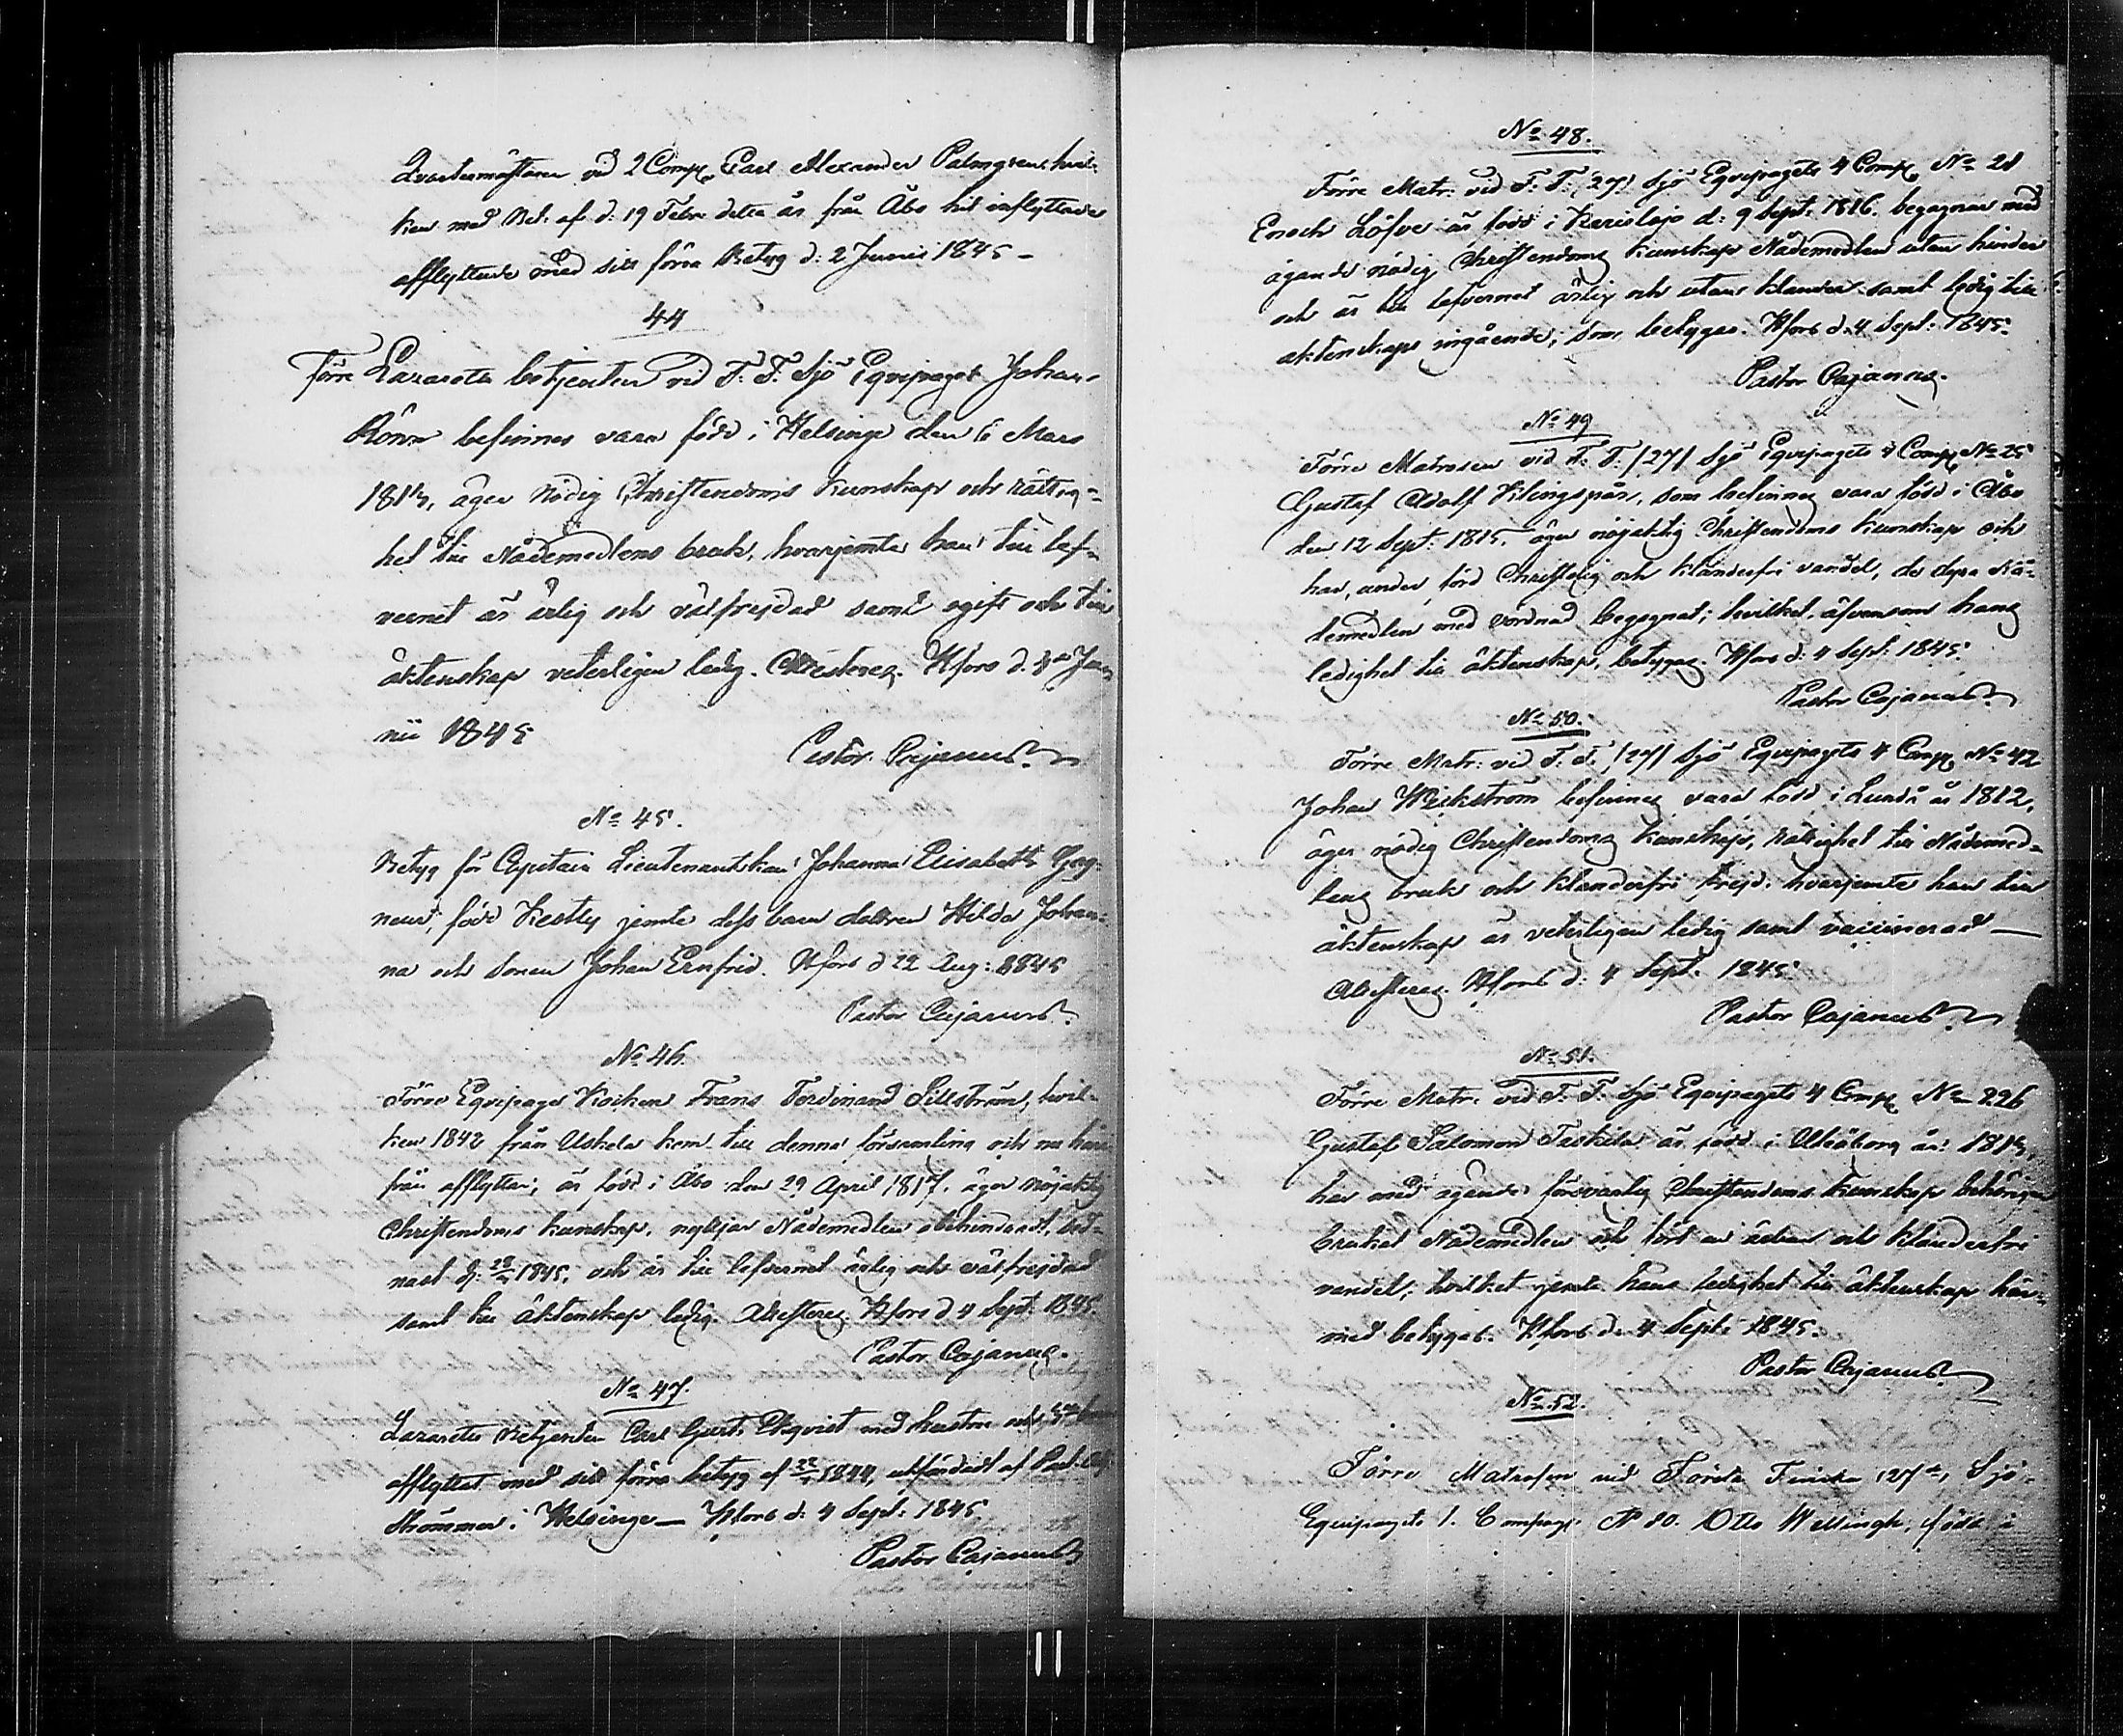 Qvartermästaren vid 2 Comp. Carl Alexander Palmgren hvil-
ken med Bet. af d: 19 Febr. detta år från Åbo hit inflyttade
afflyttade med sitt förra Betyg d. 2 Junii 1845 -
44
förre Lazaretts betjenten vid F. F. Sjö Equipaget Johan
Rönn befinnes vara född i Helsinge den 6 Mars
1813, äger nödig Christendoms kunskap och rättig-
het till Nådemedlens bruk, hvarjemte han till lef-
vernet är ärlig och välfrejdad samt ogift och till
äktenskap veterligen ledig. Attesteras. Hfors d. Ju-
nii 1845
Pastor Cajanus.
No 45.
Betyg för Capitain Lieutenantskan Johanna Elisabeth
född jemte dess barn dottren Hilda Johan-
na och sonen Johan Ernfrid. Hfors d 22 Aug: 1845
Pastor Cajanus.
No 46.
Förre Equipage Kocken Frans Ferdinand Sillström, hvil-
ken 1842 från Uskela kom till denna församling och nu här-
från afflyttar, är född i Åbo den 29 April 1817, äger nöjaktig
Christendoms kunskap, nyttjar Nådemedlen obehindradt, sed-
nast d: 1845, och är till lefvernet ärlig och välfrejdad
samt till äktenskap ledig. Attesteras Hfors d 4 Sept. 1845.
Pastor Cajanus.
No 47.
Lazaretts Betjenten Carl Gust. Ekqvist med hustru och
afflyttat med sitt förra betyg af 1844, utfärdadt af Past.
Strömmer i Helsinge — Hfors d: 4 Sept: 1845.
Pastor Cajanus
No 48.
Förre Matr. vid F. F. /27/ Sjö Equipagets 4 Comp. No 21
Enoch Löfve är född i Karislojo d: 9 Sept: 1816. begagnar med
ägande nödig Christendoms kunskap Nådemedlen utan hinder
och är till lefvernet ärlig och utan klander samt ledig till
äktenskaps ingående, som betygas. Hfors d. 4 Sept: 1845.
Pastor Cajanus.
No 49
Förre Matrosen vid F. F. /27/ Sjö Equipagets 4 Comp. No 25
Gustaf Adolf Klingspår, som befinnes vara född i Åbo
den 12 Sept: 1815, äger nöjaktig Christendoms kunskap och
har, under förd Christelig och klanderfri vandel, de dyra Nå-
demedlen med vördnad begagnat; hvilket, äfvensom hans
ledighet till äktenskap, betygas. Hfors d: 4 Sept: 1845.
Pastor Cajanus.
No 50.
Förre Matr: vid F. F. /27/ Sjö Equipagets 4 Comp. No 42
Johan Wickström befinnes vara född i Lundå år 1812,
äger nödig Christendoms kunskap, rättighet till Nådemed-
lens bruk och klanderfri frejd, hvarjemte han till
äktenskap är veterligen ledig samt vaccinerad —
Attesteras. Hfors d: 4 Sept. 1845.
Pastor Cajanus.
No 51.
Förre Matr. vid F. F. Sjö Equipagets 4 Comp. No 226
Gustaf Salomon Taskila är född i Uleåborg år 1813,
har med ägande försvarlig Christendoms kunskap behörigen
brukat Nådemedlen och fört en ärbar och klanderfri
vandel; hvilket jemte hans ledighet till äktenskap här-
med betygas. Hfors d. 4 Sept: 1845.
Pastor Cajanus.
No 52.
Förre Matrosen vid Första Finska /27de/ Sjö-
Equipagets 1. Compagn. No 80. Otto Wellingk, född i